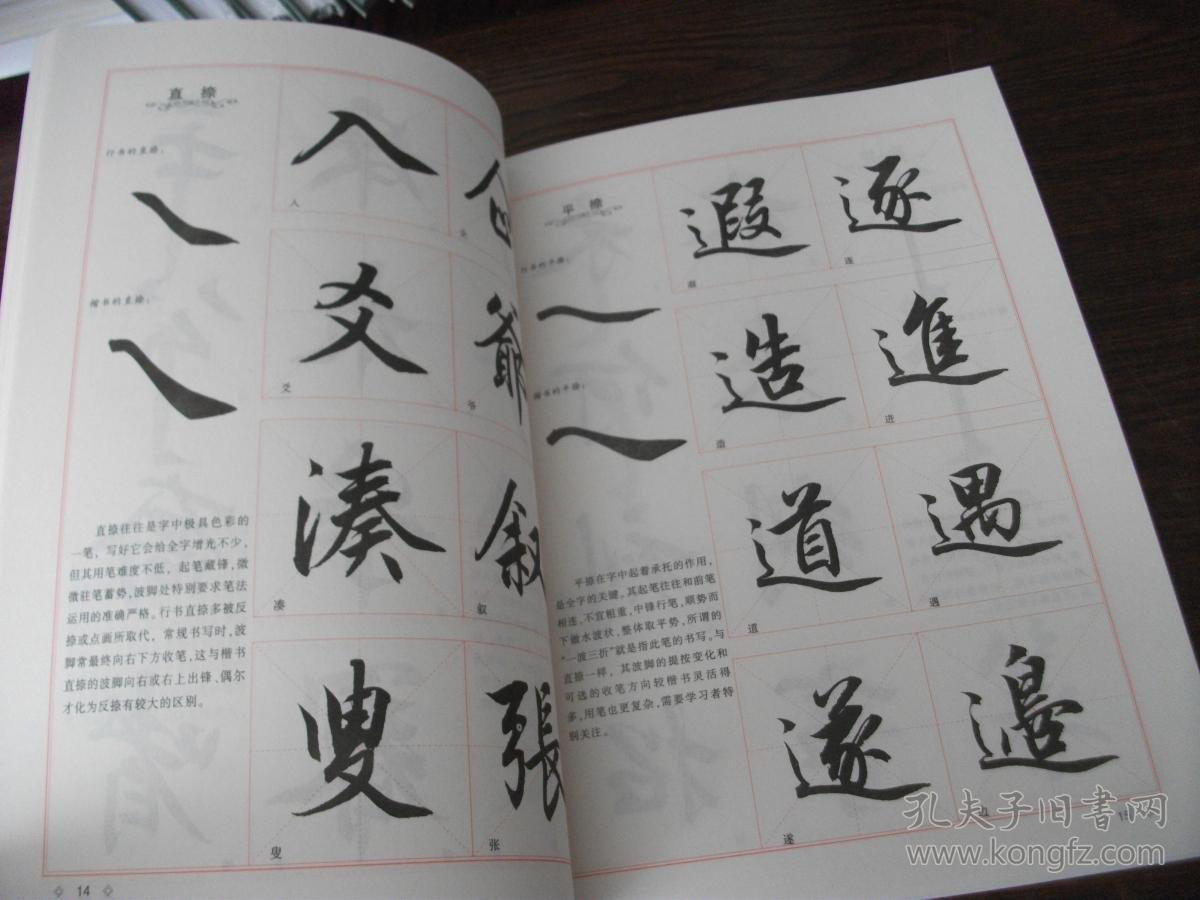 直捺
行书的直捺：
楷书的直捺：
直捺往往是字中极具色彩的
一笔，写好它会给全字增光不少，
但其用笔难度不低，起笔藏锋，微
微驻笔蓄势，波脚处特别要求笔法
运用的准确严格。行书直捺多被反
捺或点画所取代，常规书写时，波
脚常最终向右下方收笔，这与楷书
直捺的波脚向右或右上出锋、偶尔
才化为反捺有较大的区别。
人
人
爻
爻
爺
爷
湊
凑
叙
叙
叟
叟
張
张
14
平捺
行书的平捺：
楷书的平捺：
平捺在字中起着承托的作用，
是全字的关键。其起笔往往和前笔
相连，不宜粗重，中锋行笔，顺势而
下做水波状，整体取平势，所谓的
“一波三折”就是指此笔的书写。与
直捺一样，其波脚的提按变化和
可选的收笔方向较楷书灵活得
多，用笔也更复杂，需要学习者特
别关注。
遐
遐
逐
逐
造
造
進
进
道
道
遇
遇
遂
遂
邊
边
15
孔夫子旧书网
www.kongfz.com